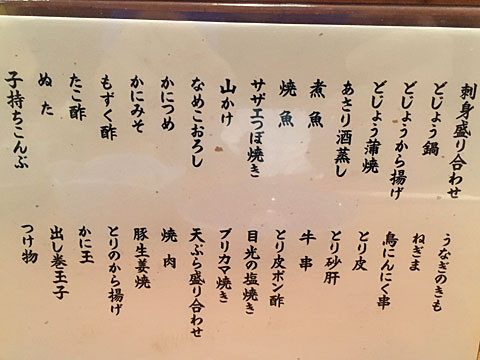 刺身盛り合わせ
どじょう鍋
どじょうから揚げ
どじょう蒲焼
あさり酒蒸し
煮魚
焼魚
サザエつぼ焼き
山かけ
なめこおろし
かにつめ
かにみそ
もずく酢
たこ酢
ぬた
子持ちこんぶ
うなぎのきも
ねぎま
鳥にんにく串
とり皮
とり砂肝
牛串
とり皮ポン酢
目光の塩焼き
ブリカマ焼き
天ぷら盛り合わせ
焼肉
豚生姜焼
とりのから揚げ
かに玉
出し巻玉子
つけ物